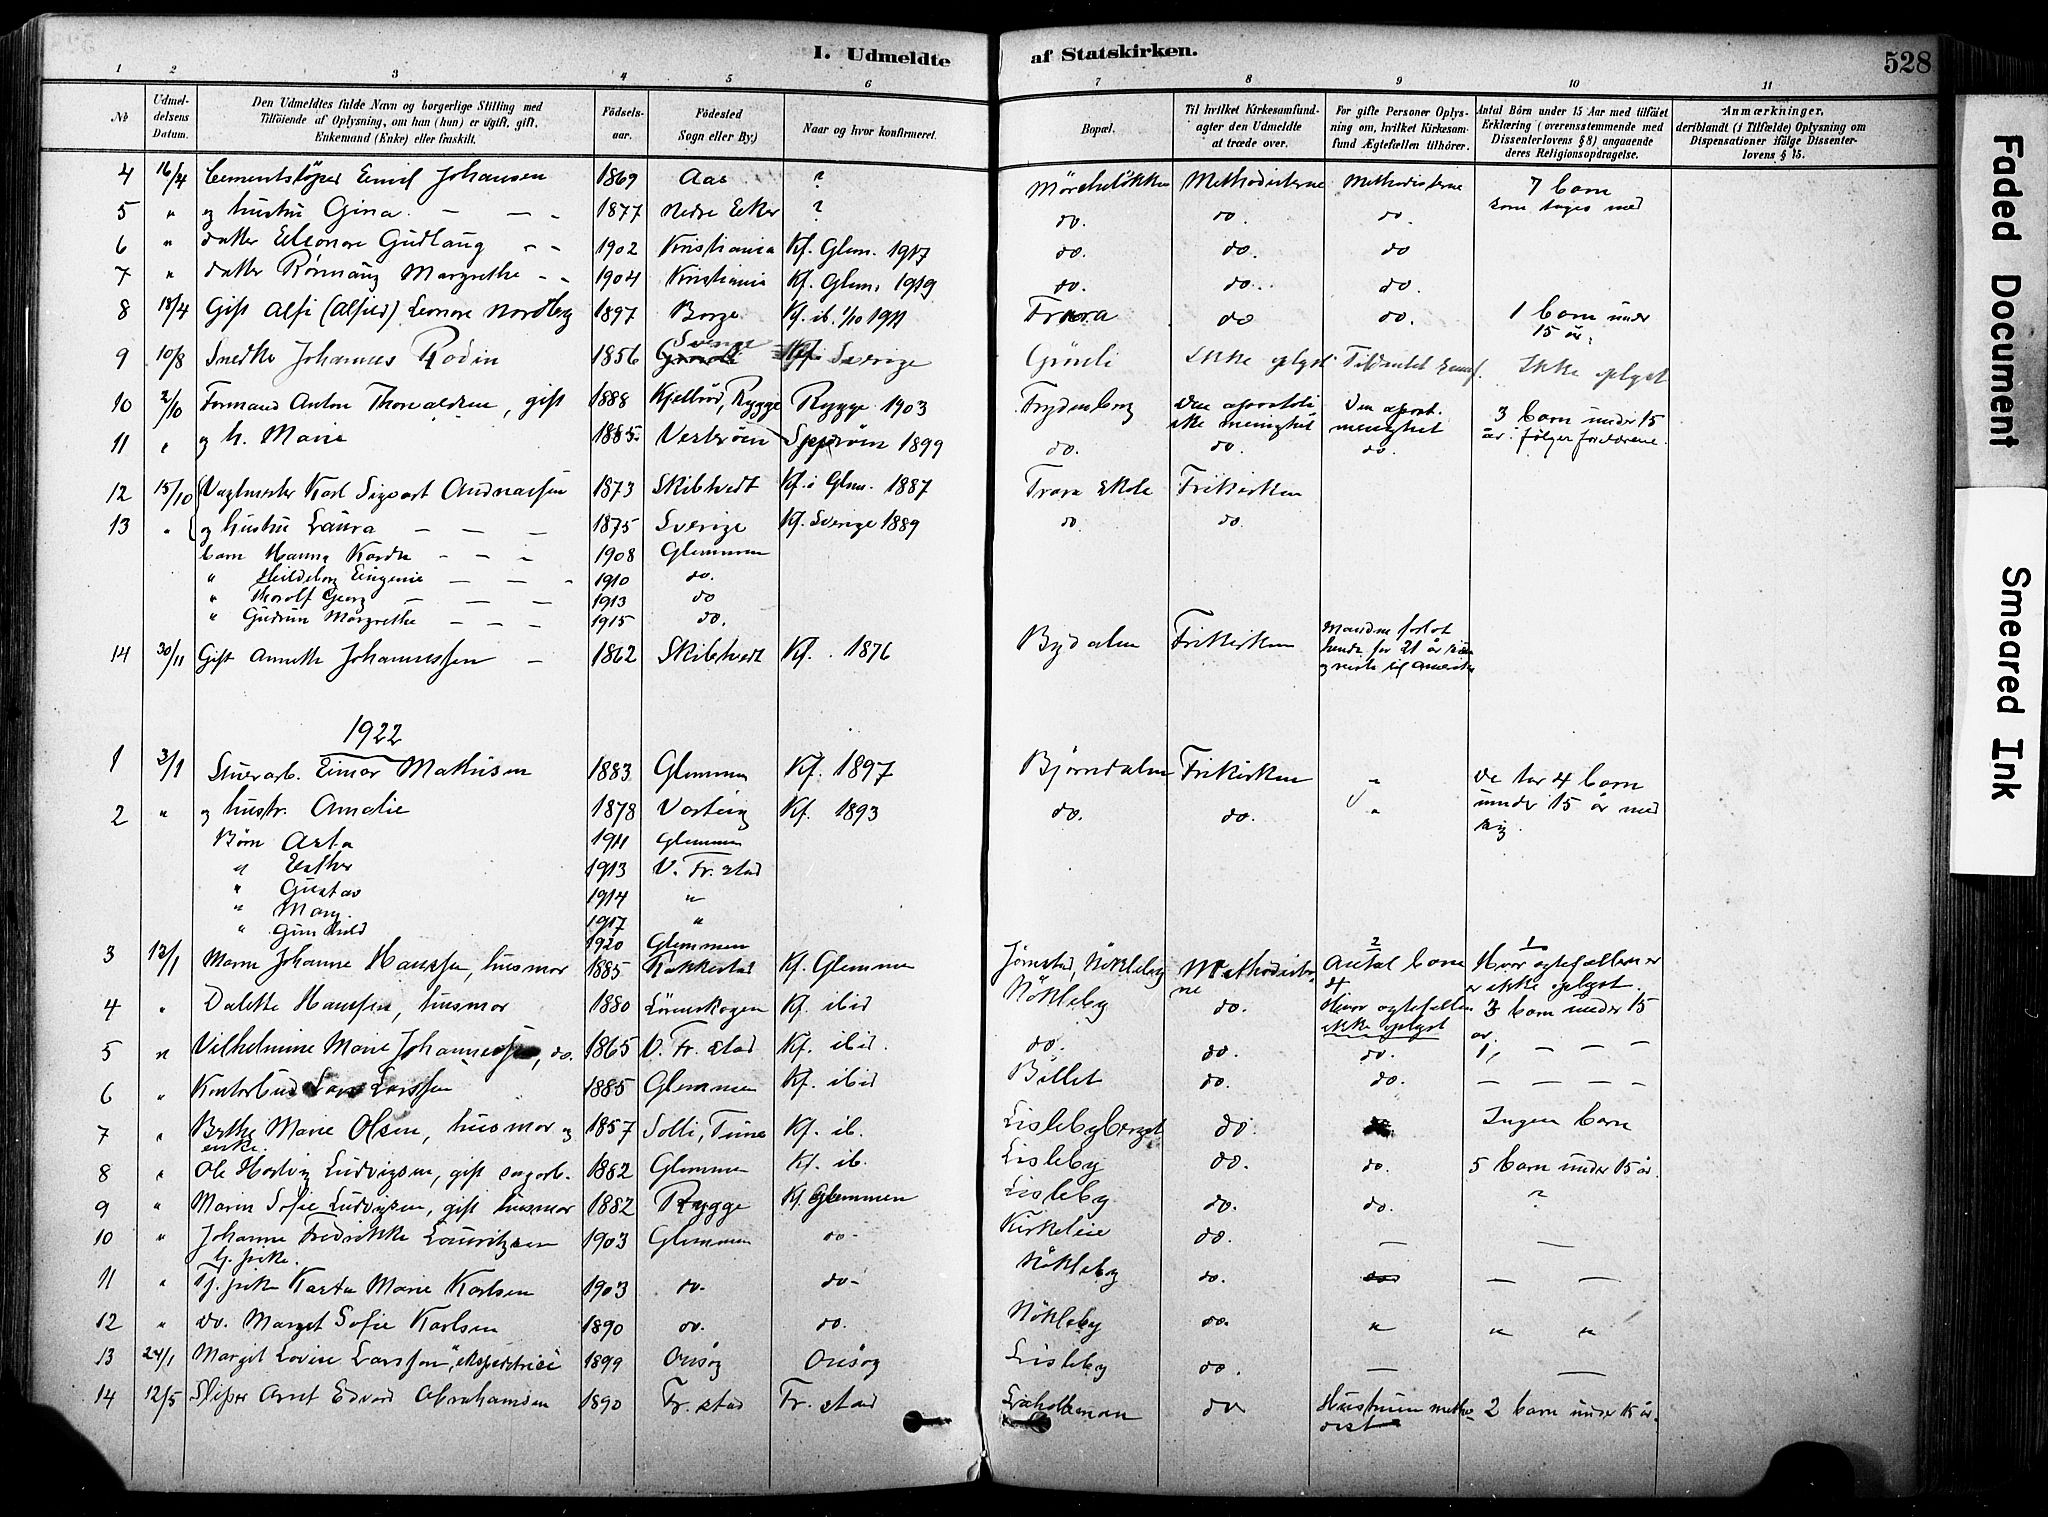 I. Udmeldte af Statskirken.
528
1 2 3 4 5 6 7 8 9 10 11
No
Udmeldelsens Datum.
Den Udmeldtes fulde Navn og borgerlige Stilling med
Tilföiende af Oplysning, om han (hun) er ugift, gift,
Enkemand (Enke) eller fraskilt.
Födselsaar.
Födested
Sogn eller By.)
Naar og hvor konfirmeret.
Bopæl.
Til hvilket Kirkesamfund
agter den Udmeldte
at træde over.
For gifte Personer Oplysning
om, hvilket Kirkesamfund
Ægtefællen tilhörer.
Antal Börn under 15 Aar med tilföiet
Erklæring (overensstemmende med
Dissenterlovens § 8) angaaende
deres Religionsopdragelse.
Anmærkninger,
deriblandt (i Tilfælde) Oplysning om
Dispensationer ifölge Dissenterlovens
§ 15.
4 16/4 Cementstöper Emil Johansen 1869 Aas ? Methodisterne Methodisterne 7 barn
som tages med
5 " og hustru Gina - - - 1877 Nedre Eeker ? do. do. do.
6 " datter Eleonore Gudlaug - - 1902 Kristiania Kf. Glem. 1917 do. do. do
7 " datter Margrethe - - 1904 Kristiania Kf. Glem. 1919 do. do. do.
8 18/4 Gift Alfi (Alfild) Leonore Nordberg 1897 Borge Kf. ib. 1/10 1911 Trara do do. 1 barn under
15 år.
9 10/8 Snedker Johannes Rodin 1856 Sverige Kf. i Sverige Gimli Ikke oplyst Ikke oplyst
10 2/10 Formand Anton Thorvaldsen, gift 1888 Kjellröd, Rygge Rygge 1903 Frydenberg Den apostoliske menighet Den apost. menighet 3 barn under 15
år følger forældrene.
11 " og h. Marie 1885 1899 do. do. do.
12 15/10 Vagtmester Karl Sigvart Andreassen 1873 Skibtvedt Kf. i Glem. 1887 Trara skole Frikirken
13 " og hustru Laura - - - 1875 Sverige Kf. Sverige 1889 do do.
barn Hanna - - - 1908 Glemmen
" Hildeborg Eugenie - - - 1910 do.
" Thorolf Georg - - - 1913 do
" Gudrun Margrethe - - - 1915 do.
14 30/11 Gift Annette Johannessen - 1862 Skibtvedt Kf. 1876 Bydalen Frikirken Manden forlot
hende for 21 år siden
og reiste til Amerika
1922
1 3/1 Einar Mathisen 1883 Glemmen Kf. 1897 Bjørndalen Frikirken " De tar 4 barn
under 15 år med
sig.
2 " og hustr. Amalie 1878 Varteig Kf. 1893 do. do. "
Børn Asta 1911 Glemmen
" Esther 1913 V. Fr. stad
" Gustav 1914 "
" Mary. 1917 "
" Gunhild 1920 Glemmen
3 12/1 Marie Johanne Hanssen, husmor 1885 Rakkestad Kf. Glemmen Nökleby Methodisterne 2 Antal barn
4 1 Hvor ægtefællen er
er ikke oplyst.
4 " Dalette Hanssen, husmor 1880 Lörenskogen Kf. ibid Nökleby do. Hvor ægtefællen
ikke oplyst 3 barn under 15
år.
5 " Vilhelmine Marie Johannessen, do. 1865 V. Fr. stad Kf. ibid. do. do. do. 1, - - -
6 " Kontorbud Lars Larssen 1885 Glemmen Kf. ibid do. do. - - - -
7 " Berthe Marie Olsen, husmor og
enke. 1857 Solli, Tune Kf. ib. Lislebyberget do. Ingen barn
8 " Ole Hartvig Ludvigsen, gift sagarb. 1882 Glemmen Kf. ib. Lisleby do. do. 5 barn under 15 år.
9 " Marin Sofie Ludvigsen, gift husmor 1882 Rygge Kf. Glemmen Lisleby do. do. ?
10 " Johanne Fredrikke Lauritzen
tj. pike. 1903 Glemmen do- Kirkeleie do. - -
11 " Tj. pike Marie Karlsen 1903 do. do- Nökleby do. do - -
12 " do. Margit Sofie Karlsen 1890 do. do. Nökleby do. " " "
13 24/1 Margit Lovise Larssen, ekspeditrice 1899 Onsöy Onsöy Lisleby do. - -
14 12/5 Sliper Arnt Edvard Abrahamsen 1890 Fr. stad Fr. stad do Hustruen methodist 2 barn under 15 år.
Faded Document
Smeared Ink